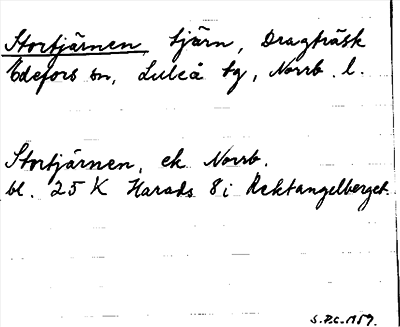 Stortjärnen, tjärn, Dragträsk
Edefors sn, Luleå tg, Norrb. l.
Stortjärnen, ek Norrb.
bl. 25 K Harads 8 i Rektangelberget.